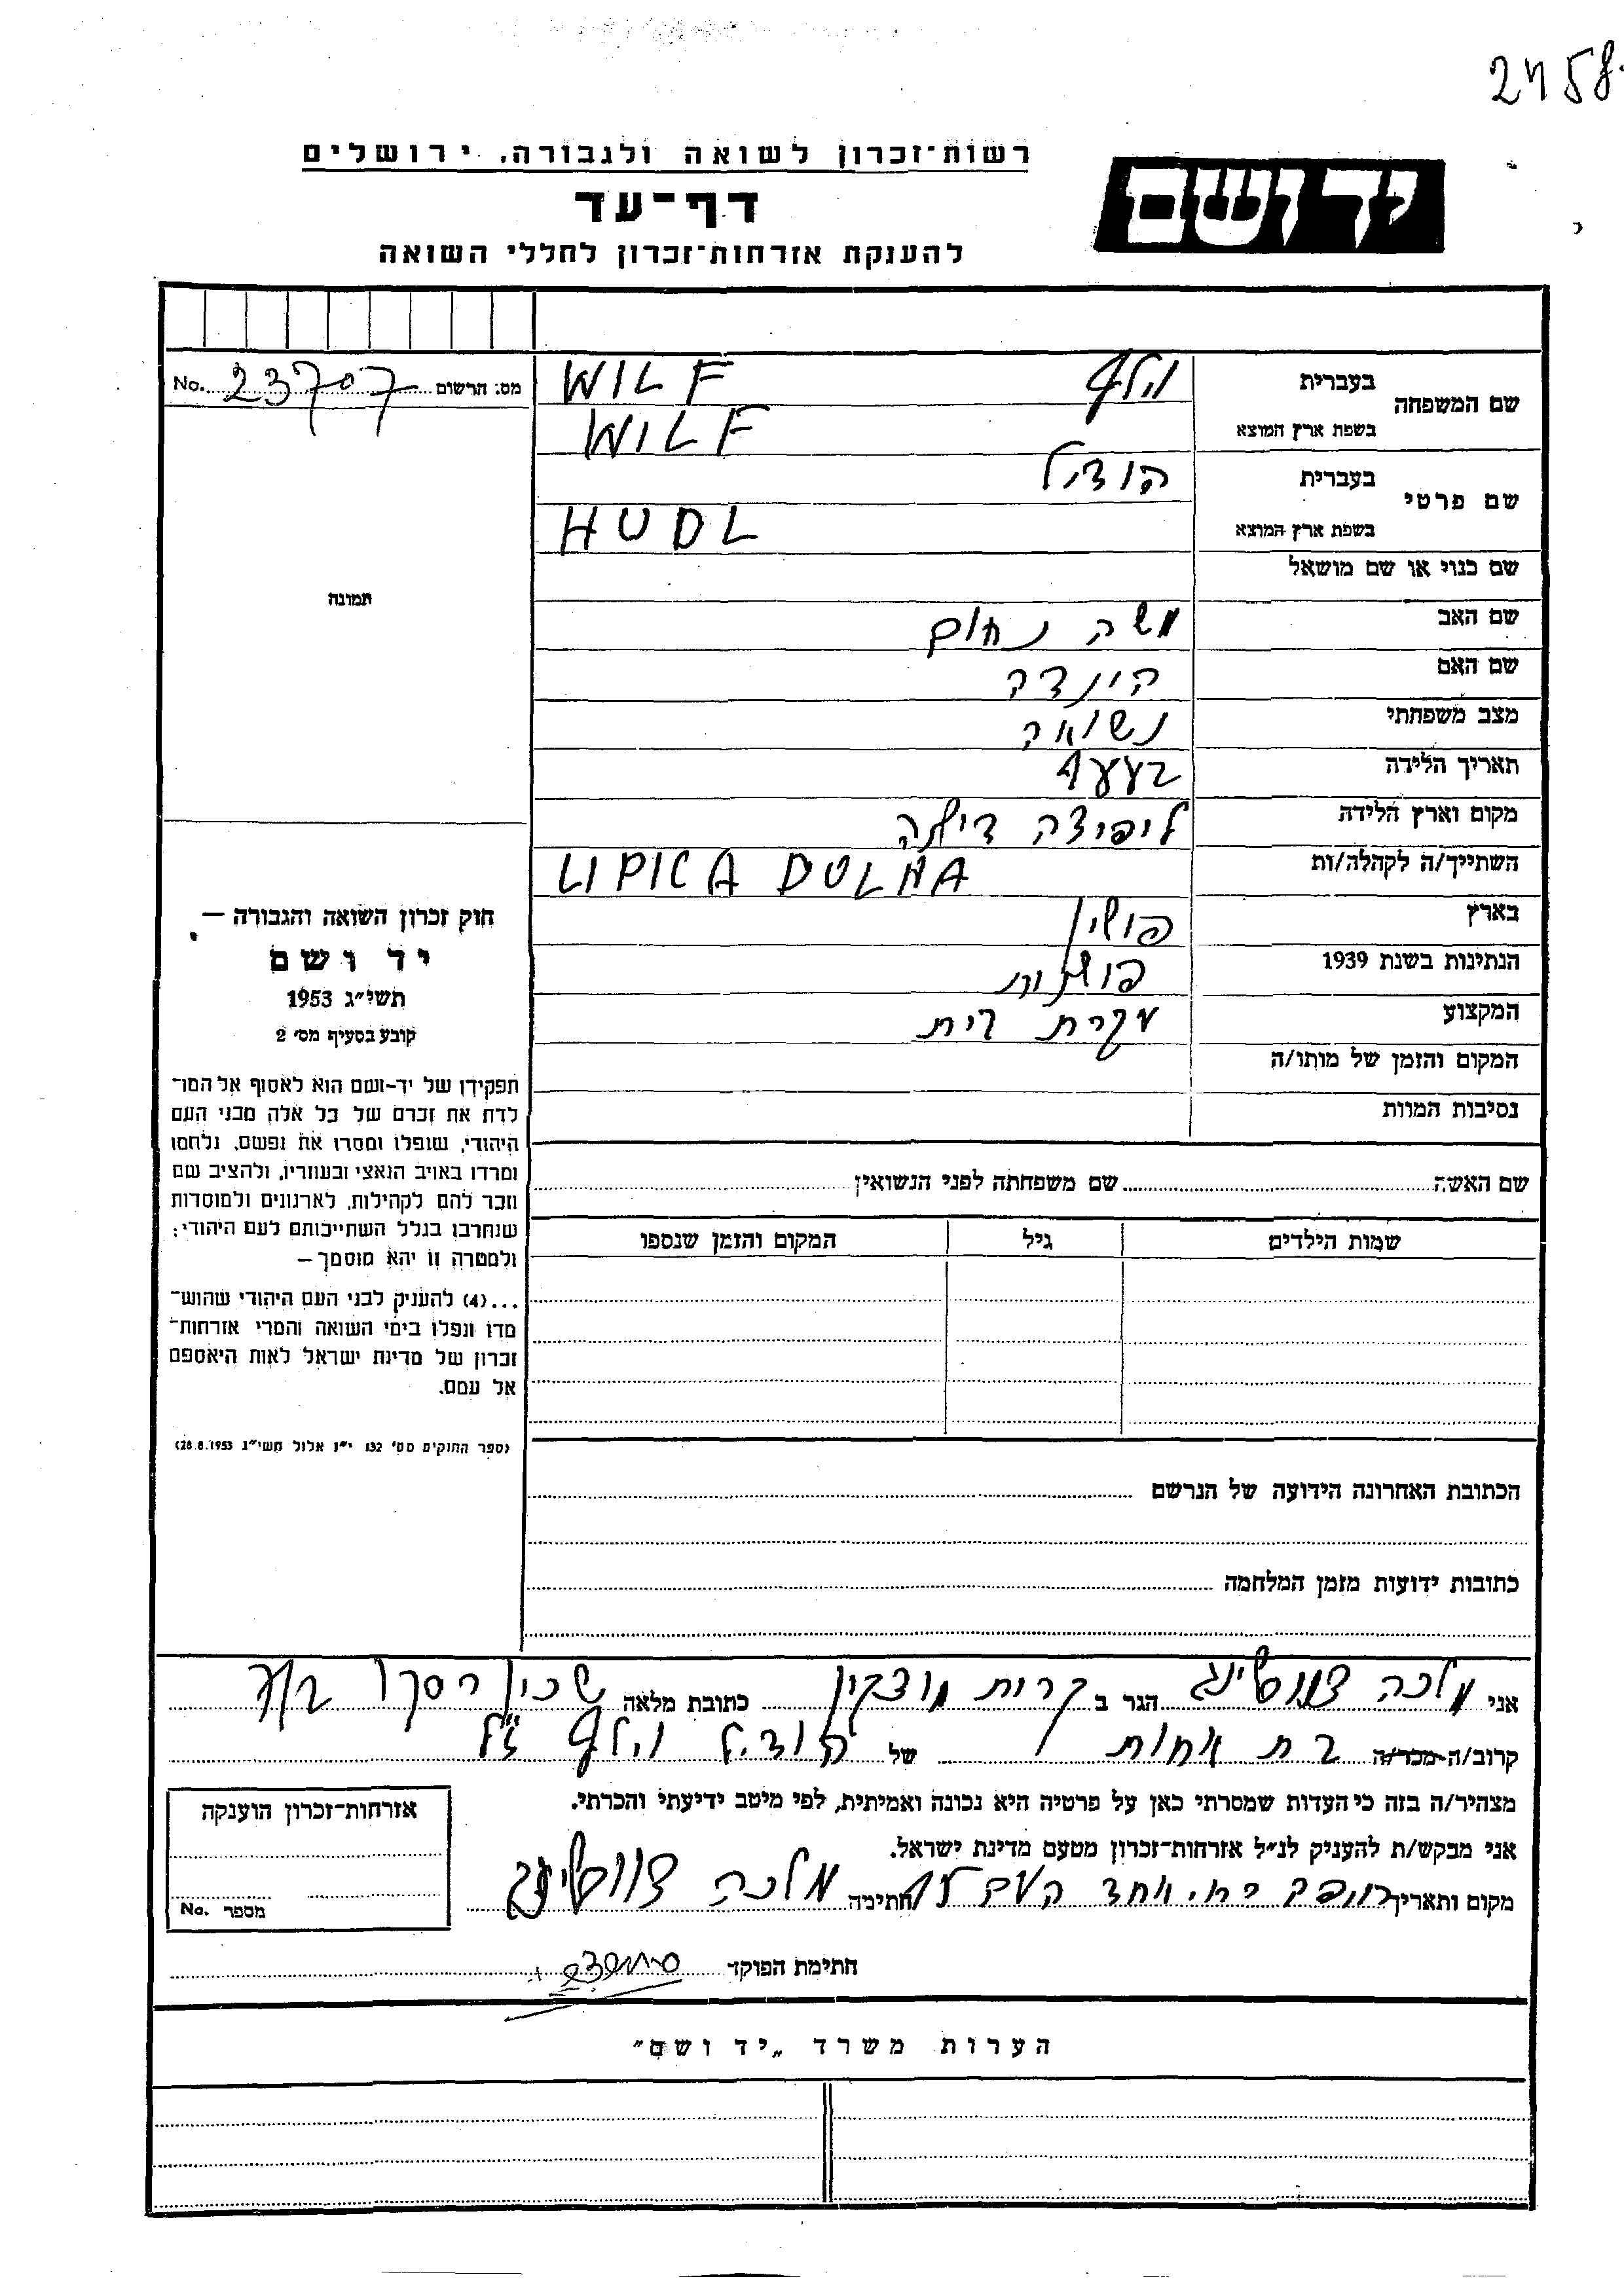 2458
רשות־זכרון לשואה ולגבורה, ירושלים
יד ושם
דף־עד
להענקת אזרחות־זכרון לחללי השואה
No. 23707 מס. הרשום
שם המשפחה בעברית וילף WILF
בשפת ארץ המוצא WILF
שם פרטי בעברית הודיל
בשפת ארץ המוצא HUDL
שם כנוי או שם מושאל
תמונה
שם האב משה נחום
שם האם הינדה
מצב משפחתי נשואה
תאריך הלידה
מקום וארץ הלידה ליפיצה
השתייך/ה לקהלה/ות LIPICA DOLNA
בארץ פולין
הנתינות בשנת 1939 פולנית
המקצוע עקרת בית
המקום והזמן של מותו/ה
נסיבות המוות
חוק זכרון השואה והגבורה —
יד ושם
תשי״ג 1953
קובע בסעיף מס׳ 2
תפקידו של יד-ושם הוא לאסוף אל המו־
לדת את זכרם של כל אלה מבני העם
היהודי, שנפלו ומסרו את נפשם, נלחמו
ומרדו באויב הנאצי ובעוזריו, ולהציב שם
וזכר להם לקהילות, לארגונים ולמוסדות
שנחרבו בגלל השתייכותם לעם היהודי;
ולמטרה זו יהא מוסמך —
...(4) להעניק לבני העם היהודי שהוש־
מדו ונפלו בימי השואה והמרי אזרחות־
זכרון של מדינת ישראל לאות היאספם
אל עמם.
(ספר החוקים מס׳ 132 י״ז אלול תשי״ג 28.8.1953)
שם האשה שם משפחתה לפני הנשואין
שמות הילדים גיל המקום והזמן שנספו
הכתובת האחרונה הידועה של הנרשם
כתובות ידועות מזמן המלחמה
אני מלכה צווטלינג הגר ב קרית מוצקין כתובת מלאה שכון רסקו
קרוב/ה מכר/ה בת אחות של הודיל וילף ז״ל
מצהיר/ה בזה כי העדות שמסרתי כאן על פרטיה היא נכונה ואמיתית, לפי מיטב ידיעתי והכרתי.
אני מבקש/ת להעניק לנ״ל אזרחות־זכרון מטעם מדינת ישראל.
מקום ותאריך אחד העם חתימה מלכה צווטלינג
חתימת הפוקד
אזרחות־זכרון הוענקה
No. מספר
הערות משרד „יד ושם״